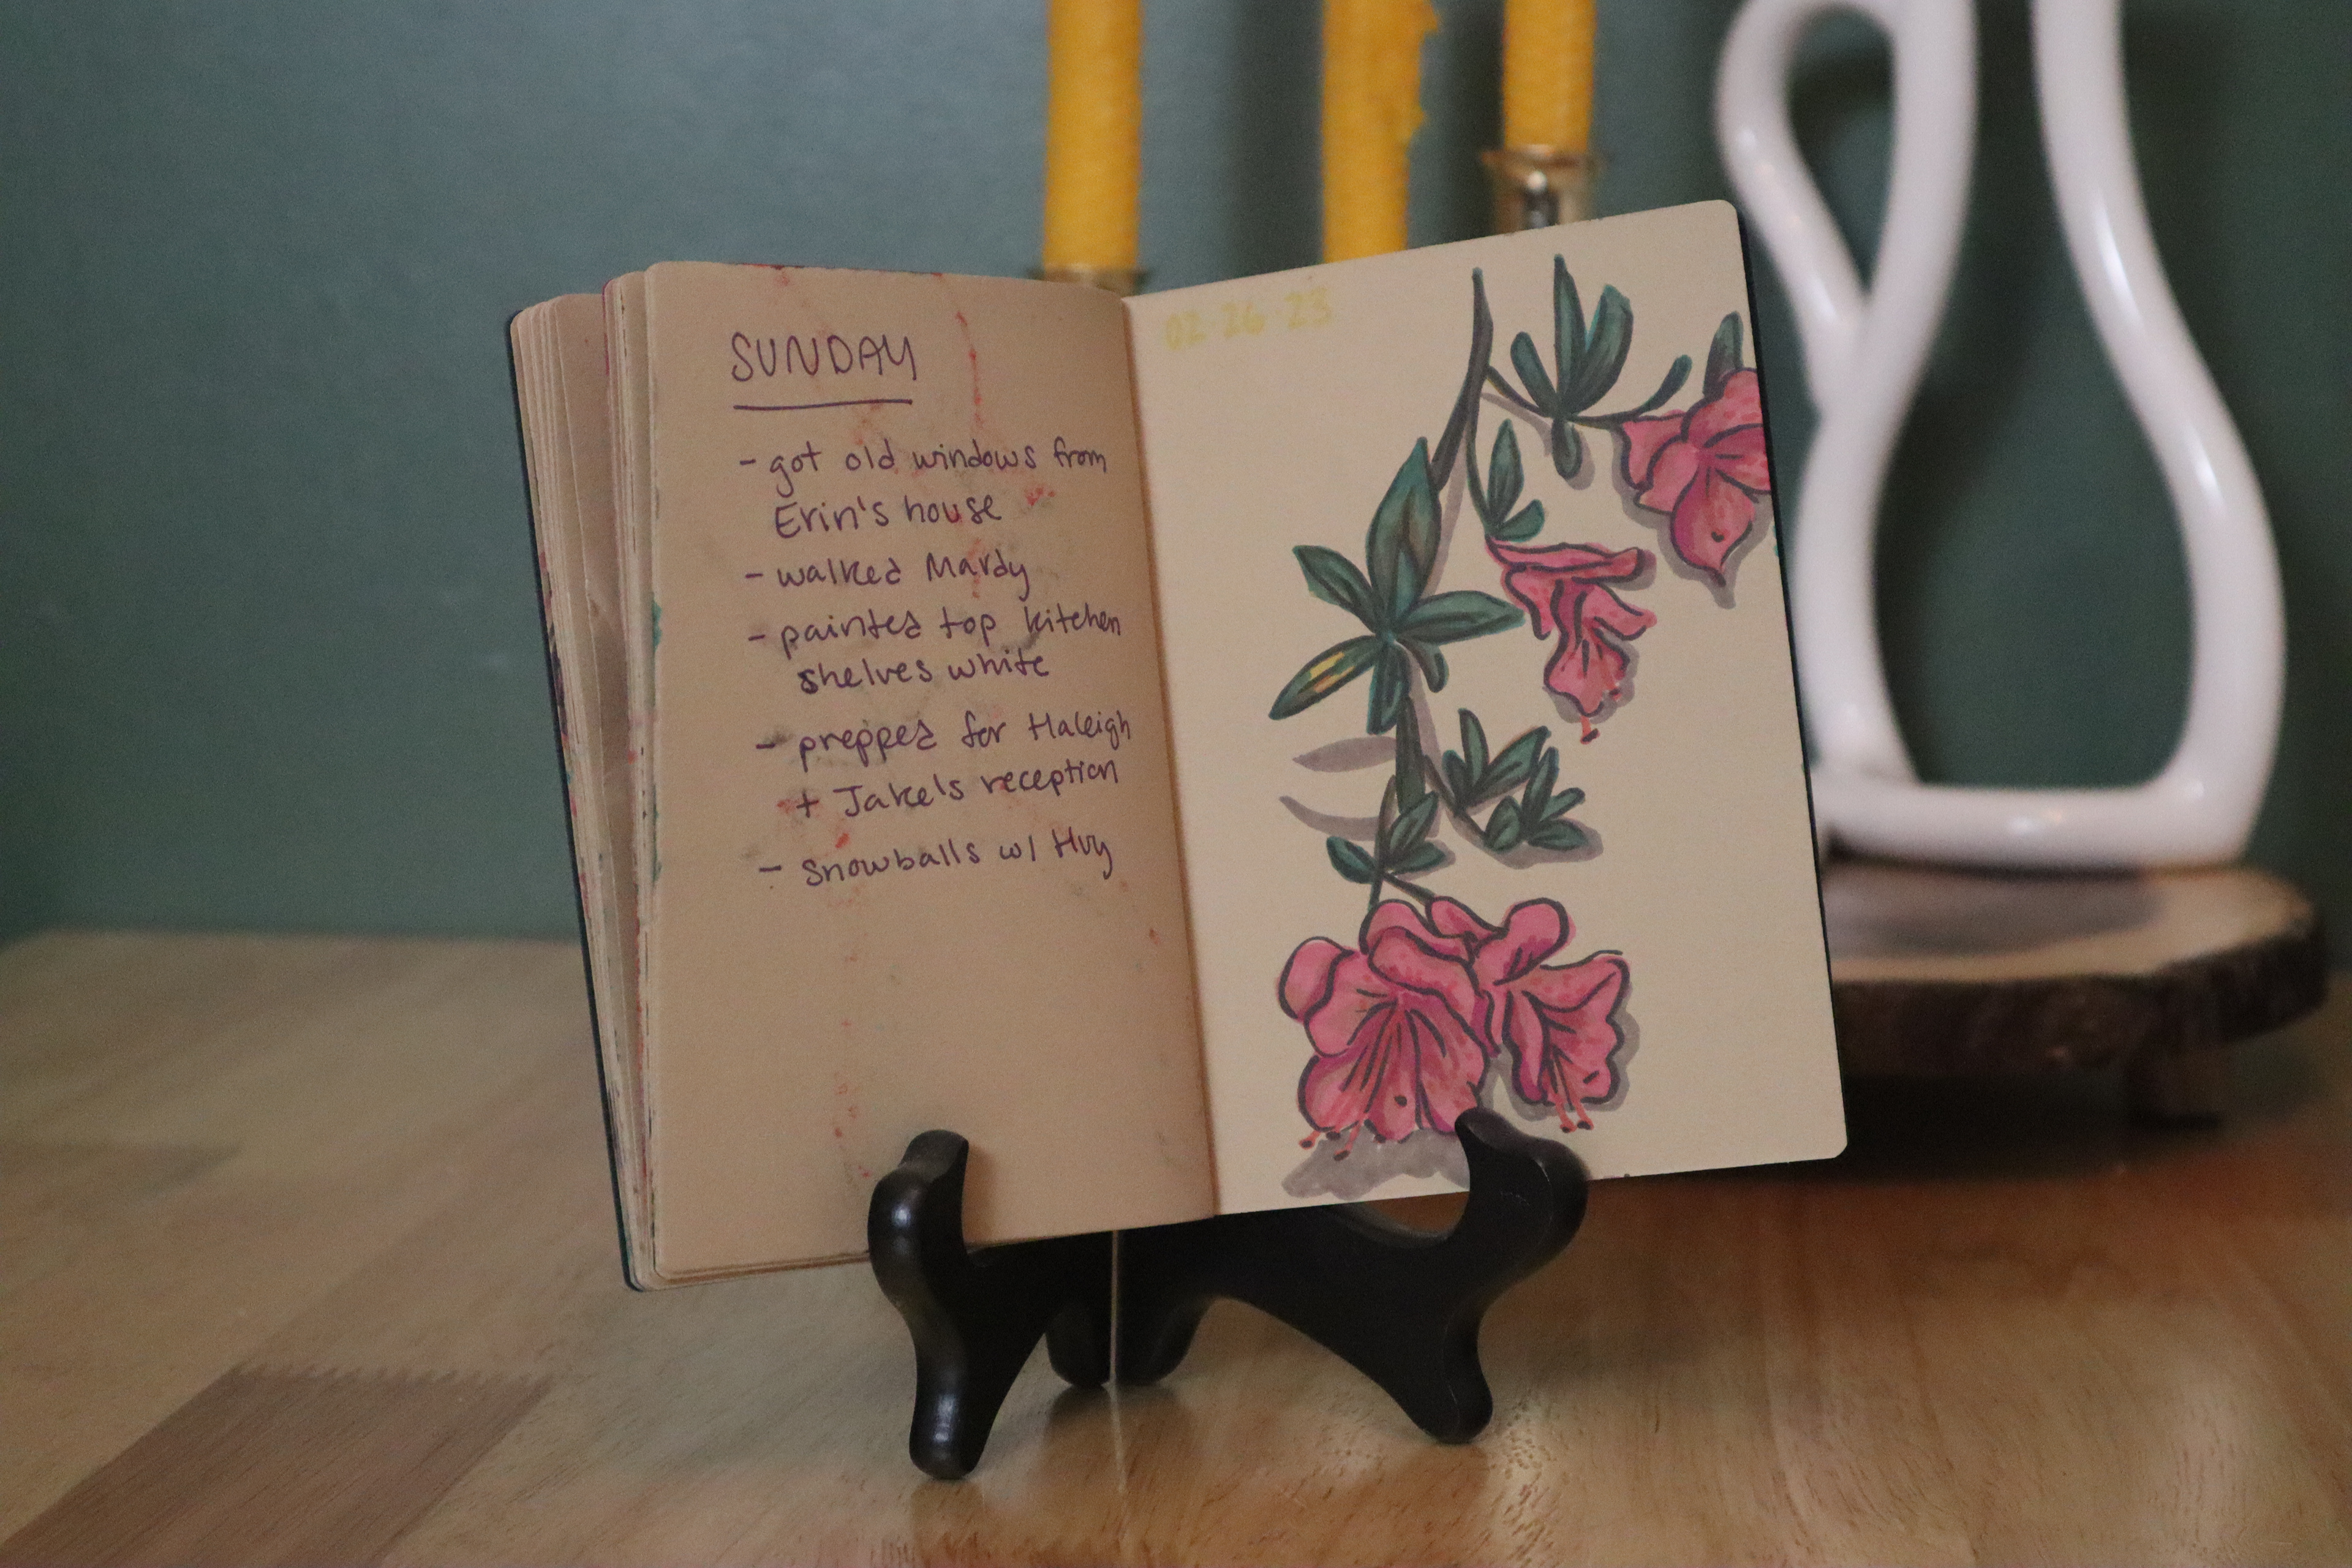 SUNDAY
- got old windows from
Erin's house
- walked Mardy
- painted top kitchen
shelves white
- prepped for Haleigh
+ Jake's reception
- Snowballs w/ Huy
02·26·23